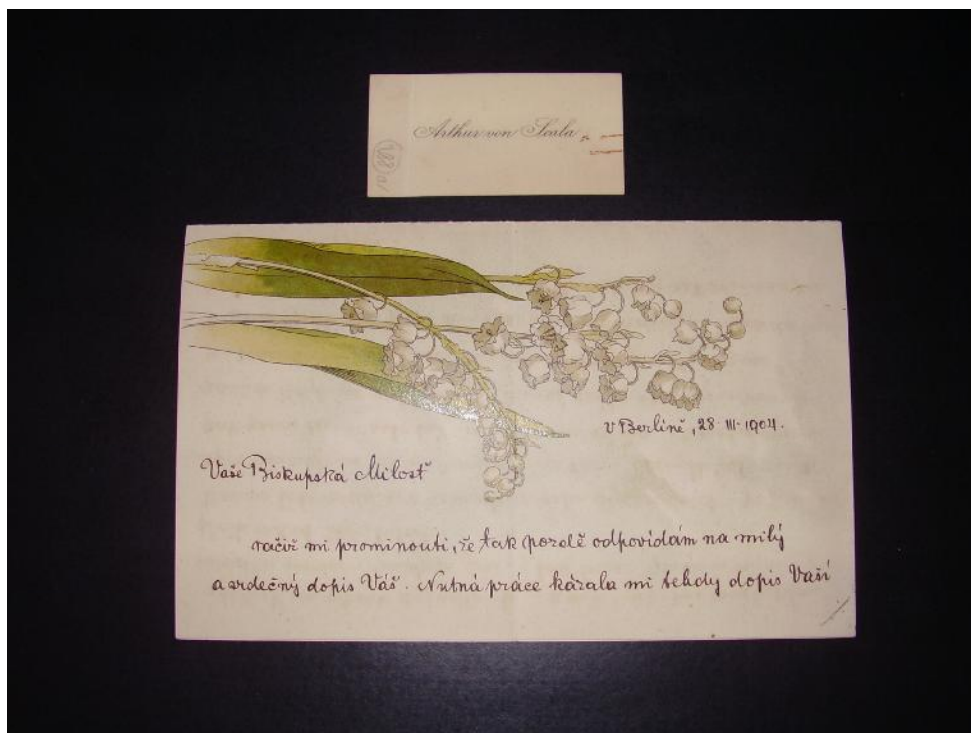 Arthur von Scala
v Berlíně, 28. III. 1904.
Vaše Biskupská Milosť
račiž mi prominouti, že tak pozdě odpovídám na milý
a srdečný dopis Váš. Nutná práce kázala mi tehdy dopis Vaší